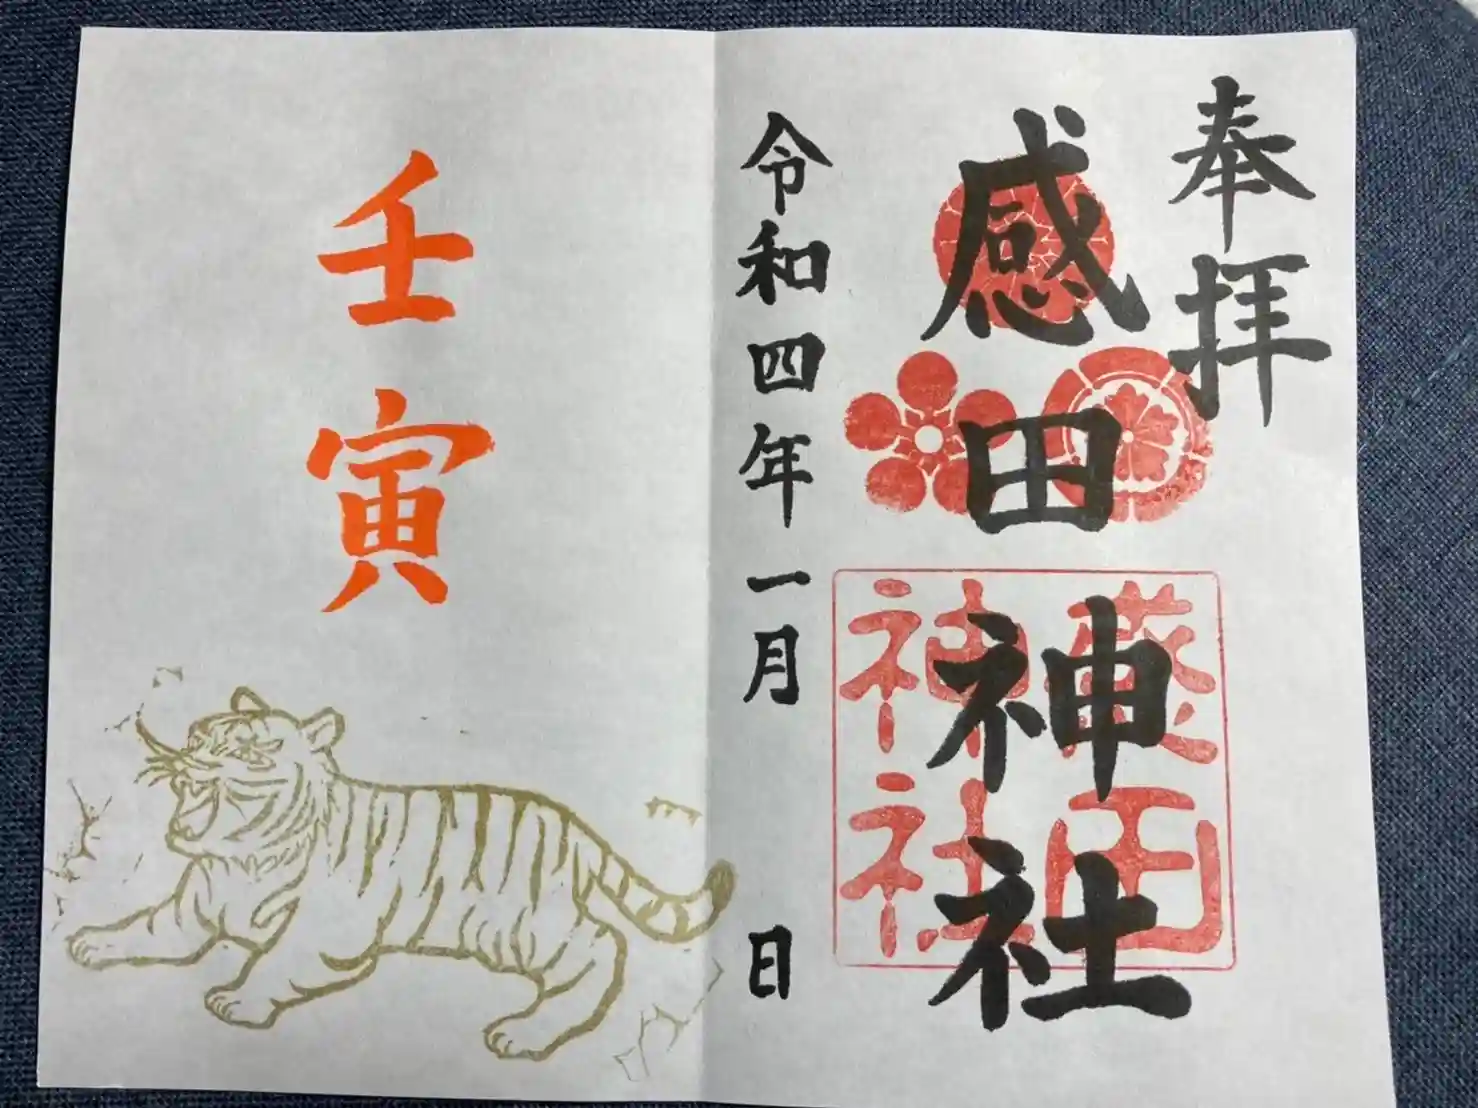 奉拝
感田神社
感田
神社
令和四年一月 日
壬寅